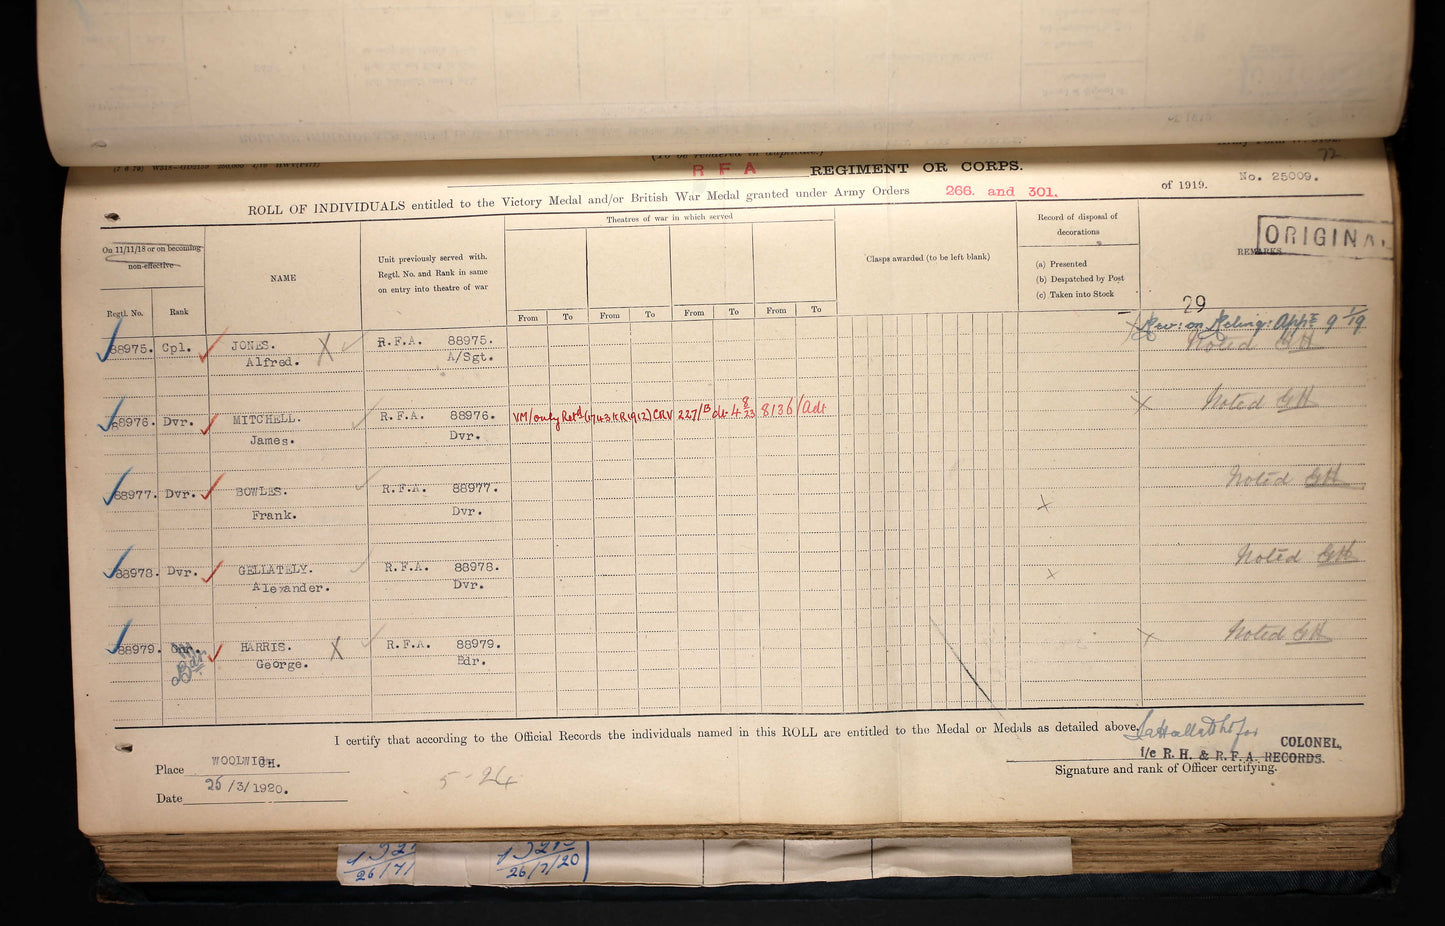 R F A REGIMENT OR CORPS.
ROLL OF INDIVIDUALS entitled to the Victory Medal and/or British War Medal granted under Army Orders 266. and 301. of 1919.
No. 25009.
ORIGINAL
Theatres of war in which served
On 11/11/18 or on becoming
non-effective
Regtl. No.
Rank
NAME
Unit previously served with.
Regtl. No. and Rank in same
on entry into theatre of war
From To From To From To From To
Clasps awarded (to be left blank)
Record of disposal of
decorations
(a) Presented
(b) Despatched by Post
(c) Taken into Stock
REMARKS
29
88975. Cpl. JONES. X R.F.A. 88975. Noted GH
Alfred. A/Sgt.
88976. Dvr. MITCHELL. R.F.A. 88976. VM/only Retd (1743 KR 1912) CRV 227/B dt. 4 8/23 8136/Adt Noted GH
James. Dvr.
88977. Dvr. BOWLES. R.F.A. 88977. Noted GH
Frank. Dvr. X
88978. Dvr. GELLATELY. R.F.A. 88978. Noted GH
Alexander. Dvr. X
88979. Gnr. HARRIS. X R.F.A. 88979. X Noted GH
Bdr George. Bdr.
I certify that according to the Official Records the individuals named in this ROLL are entitled to the Medal or Medals as detailed above.
for COLONEL,
i/c R. H. & R. F. A. RECORDS.
Signature and rank of Officer certifying.
Place WOOLWICH.
Date 25/3/1920.
5-24
26/7/
26/7/20